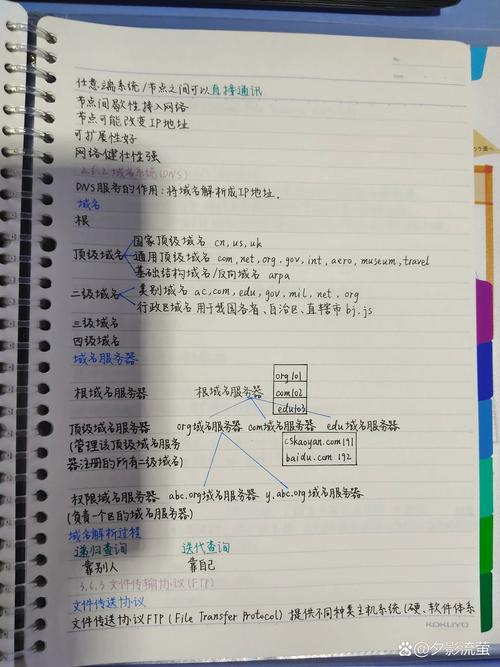 任意端系统/节点之间可以直接通讯
节点间歇性接入网络
节点可能改变IP地址
可扩展性好
网络健壮性强
2.6.2 域名系统(DNS)
DNS服务的作用:将域名解析成IP地址.
域名
根
顶级域名
国家顶级域名 cn, us, uk
通用顶级域名 com, net, org, gov, int, aero, museum, travel
基础结构域名/反向域名 arpa
二级域名
类别域名 ac, com, edu, gov, mil, net, org
行政区域名 用于我国各省、自治区、直辖市 bj. js
三级域名
四级域名
域名服务器
org 101
com 102
edu 103
根域名服务器 根域名服务器
顶级域名服务器 org域名服务器 com域名服务器 edu域名服务器
(管理该顶级域名服务
器注册的所有二级域名)
cskaoyan.com 191
baidu.com 192
权限域名服务器 abc.org域名服务器 y.abc.org域名服务器
(负责一个区的域名服务器)
域名解析过程
递归查询 迭代查询
靠别人 靠自己
文件传输协议(FTP)
文件传送协议
文件传送协议FTP (File Transfer Protocol) 提供不同种类主机系统(硬、软件体系
KOKUYO
No.
Date
@夕影流萤